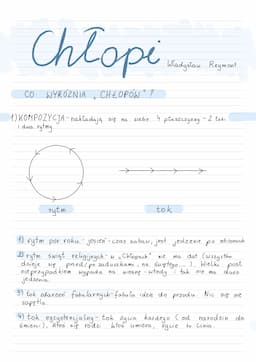 Chłopi Władysław Reymont
CO WYRÓŻNIA „CHŁOPÓW"?
1) KOMPOZYCJA - nakładają się na siebie 4 płaszczyzny - 2 toki
i dwa rytmy
rytm tok
1) rytm pór roku - jesień - czas zabaw, jest jedzenie po zbiorach
2) rytm świąt religijnych - w „Chłopach" nie ma dat (wszystko
dzieje się przed/po zaduszkach, na świętego...). Wielki post
nieprzypadkiem wypada na wiosnę - wtedy i tak nie ma dużo
jedzenia.
3) tok zdarzeń fabularnych - fabuła idzie do przodu. Nic się nie
zapętla.
4) tok egzystencjalny - tok życia każdego (od narodzin do
śmierci), ktoś się rodzi, ktoś umiera, życie to linia.